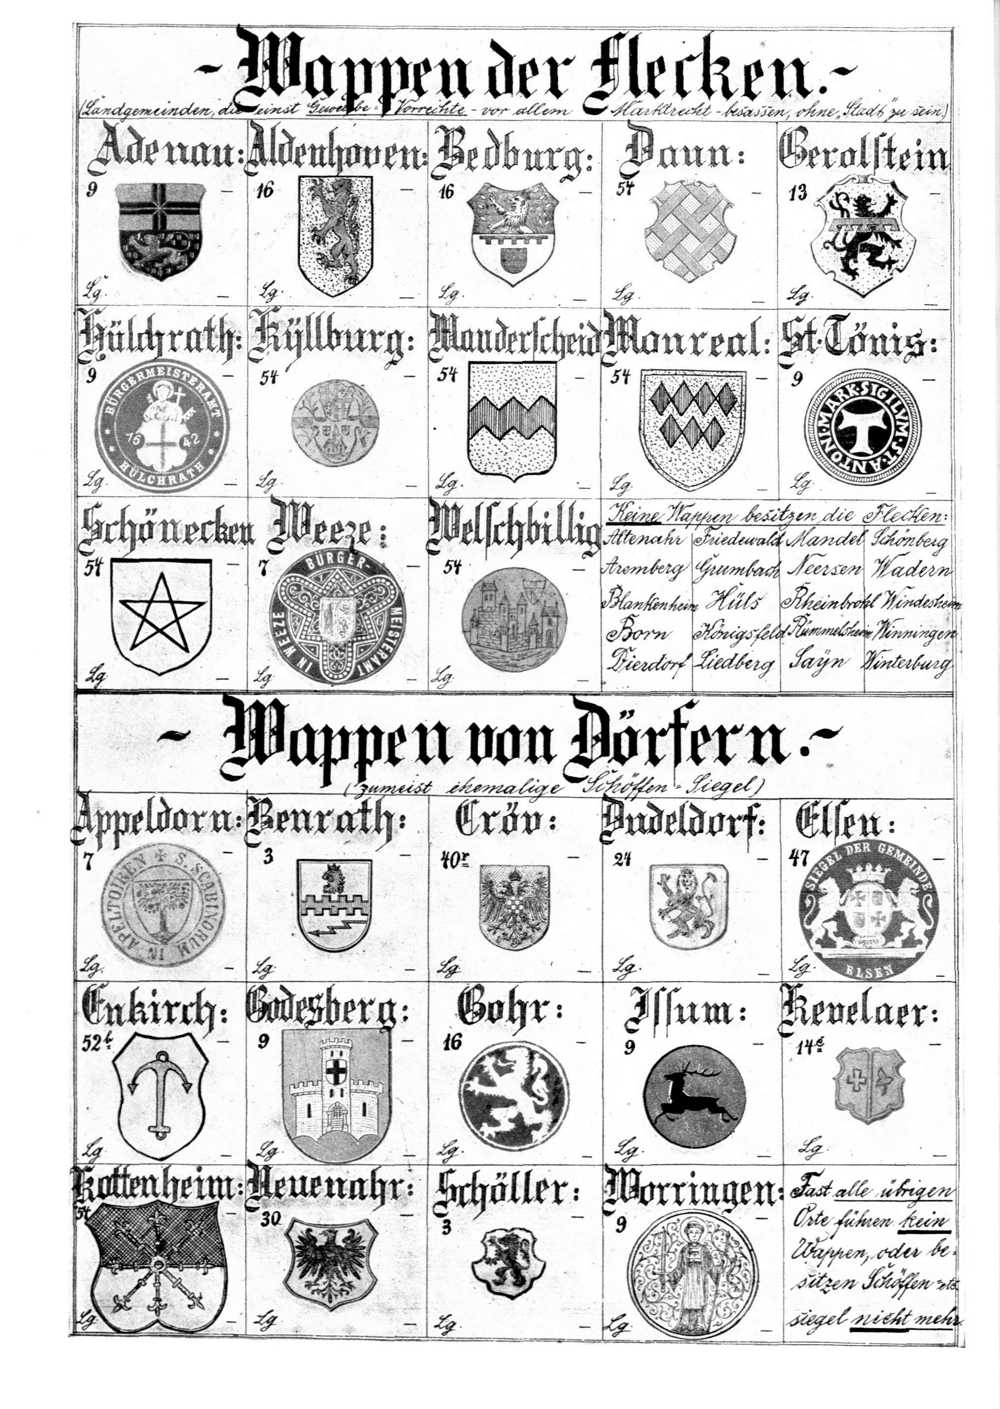 - Wappen der Flecken. -
(Landgemeinden, die einst Gewerbe-Vorrechte - vor allem Marktrecht - besassen, ohne „Stadt“ zu sein)
Adenau: Aldenhoven: Bedburg: Daun: Gerolstein
9 — 16 — 16 — 54 — 13 —
Lg. — Lg. — Lg. — Lg. — Lg. —
Hülchrath: Kÿllburg: Manderscheid Monreal: St. Tönis:
9 — 54 — 54 — 54 — 9 —
BÜRGERMEISTERAMT
1642
HÜLCHRATH
MARK·SIGILVM·ST·ANTONI
Lg. — Lg. — Lg. — Lg. — Lg. —
Schönecken Weeze: Welschbillig
54 7 — 54 —
BÜRGER-
MEISTERAMT
IN WEEZE
Lg. — Lg. — Lg. —
Keine Wappen besitzen die Flecken:
Altenahr Friedewald Mandel Schönberg
Aremberg Grumbach Neersen Wadern
Blankenheim Hüls Rheinbrohl Windesheim
Born Königsfeld Rümmelsheim Winningen
Dierdorf Liedberg Saÿn Winterburg
- Wappen von Dörfern. -
(zumeist ehemalige Schöffen-Siegel)
Appeldorn: Benrath: Cröv: Dudeldorf: Elsen:
7 — 3 — 40r — 24 — 47 —
S. SCABINORUM IN APELTOIREN
SIEGEL DER GEMEINDE
ELSEN
Lg. — Lg. — Lg. — Lg. — Lg. —
Enkirch: Godesberg: Gohr: Issum: Kevelaer:
52b — 9 — 16 — 9 — 14e —
Lg. — Lg. — Lg. — Lg. — Lg. —
Kottenheim: Neuenahr: Schöller: Worringen:
54 — 30 — 3 — 9 —
Lg. — Lg. — Lg. — Lg. —
Fast alle übrigen
Orte führen kein
Wappen, oder be-
sitzen Schöffen- etc.
siegel nicht mehr.